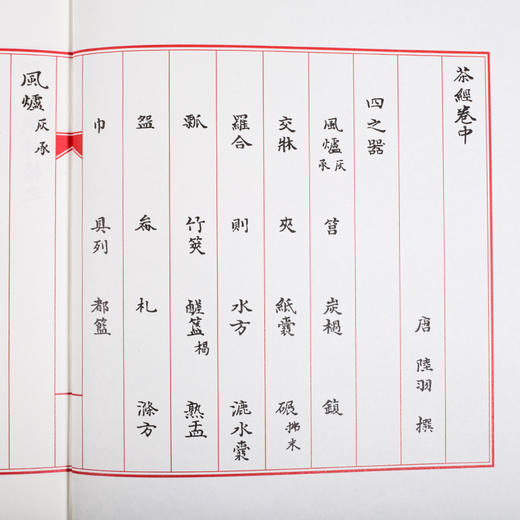 茶經卷中
唐 陸羽 撰
四之器
風爐灰承 筥 炭檛 鎮
交牀 夾 紙囊 碾拂末
羅合 則 水方 漉水囊
瓢 竹筴 鹺簋楬 熟盂
盌 畚 札 滌方
巾 具列 都籃
風爐灰承